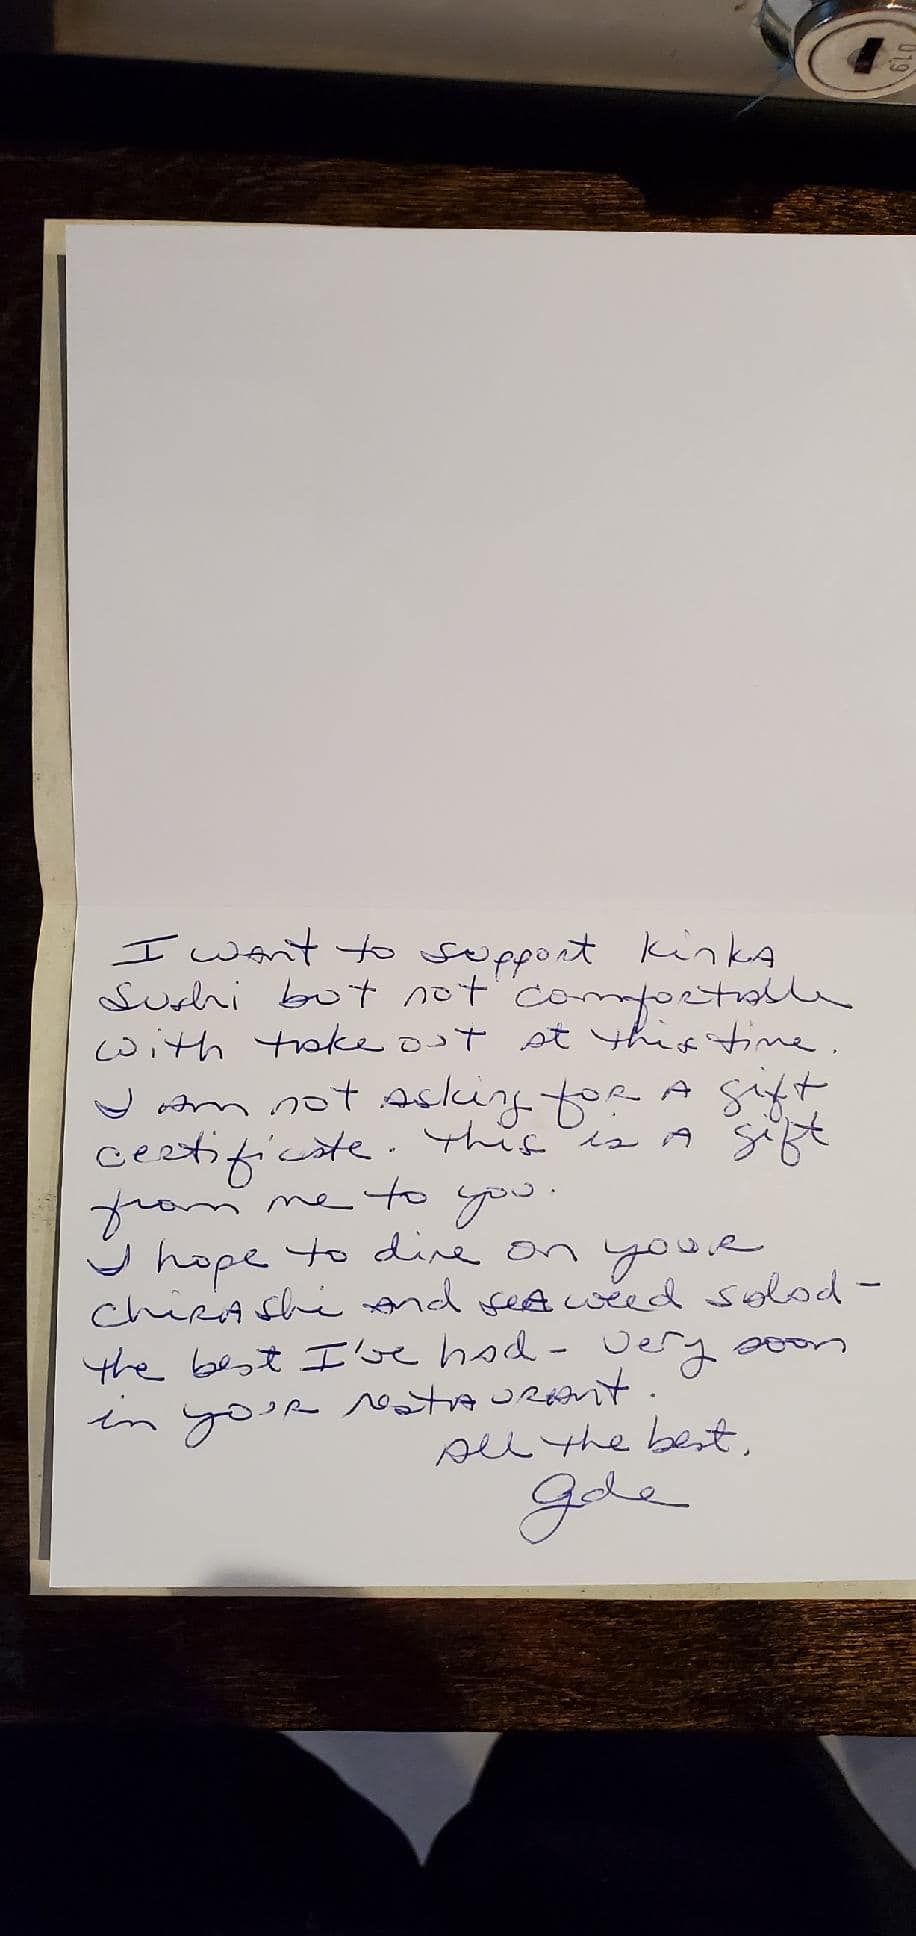 I want to support Kinka
Sushi but not comfortable
with take out at this time.
I am not asking for A gift
certificate. This is A gift
from me to you.
I hope to dine on your
chirashi and seaweed salad -
the best I've had - very soon
in your restaurant.
All the best,